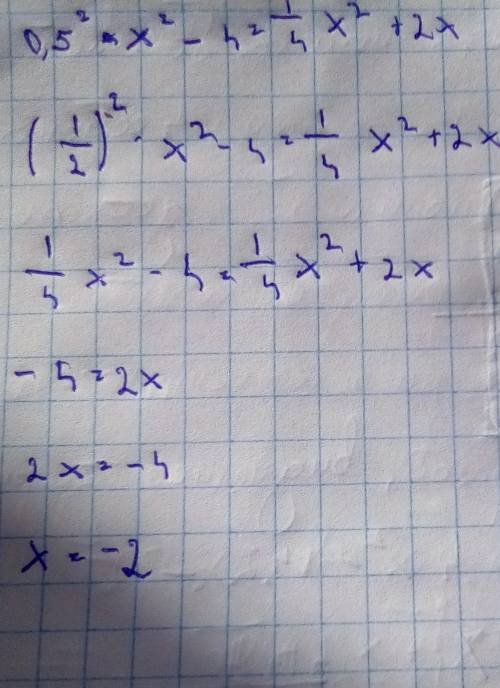 0,5² · x² - 4 = 1/4 x² + 2x
(1/2)² · x² - 4 = 1/4 x² + 2x
1/4 x² - 4 = 1/4 x² + 2x
- 4 = 2x
2x = -4
x = -2